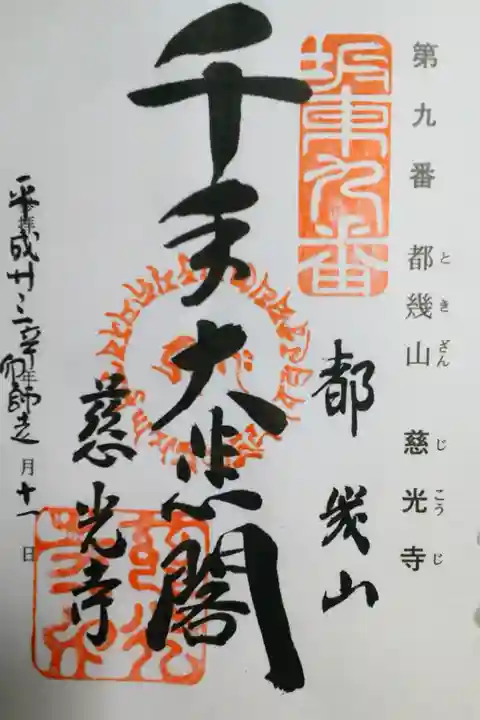 第九番 都幾山 慈光寺
と き ざん じ こう じ
坂東九番
都幾山
千手大悲閣
慈光寺
平成廿三年 師走 月十一日